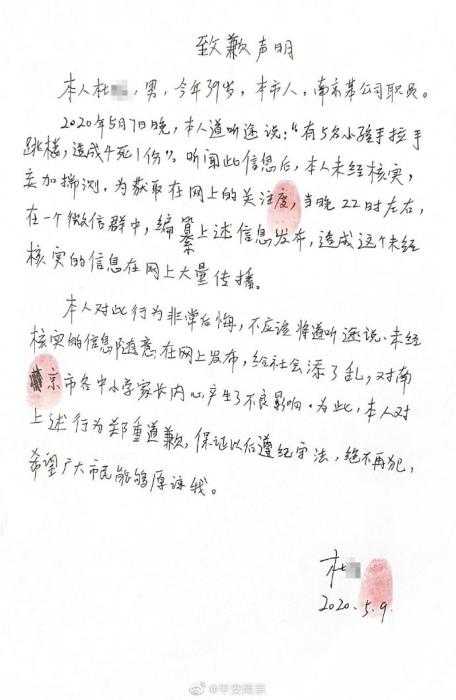 致歉声明
本人杜，男，今年39岁，本市人，南京某公司职员。
2020年5月7日晚，本人道听途说："有5名小孩手拉手
跳楼，造成4死1伤"。听闻此信息后，本人未经核实，
妄加揣测，为获取在网上的关注度，当晚22时左右，
在一个微信群中，编纂上述信息发布，造成这个未经
核实的信息在网上大量传播。
本人对此行为非常后悔，不应该将道听途说、未经
核实的信息随意在网上发布，给社会添了乱，对南
京市各中小学家长内心产生了不良影响。为此，本人对
上述行为郑重道歉，保证以后遵纪守法，绝不再犯，
希望广大市民能够原谅我。
杜
2020.5.9.
@平安南京